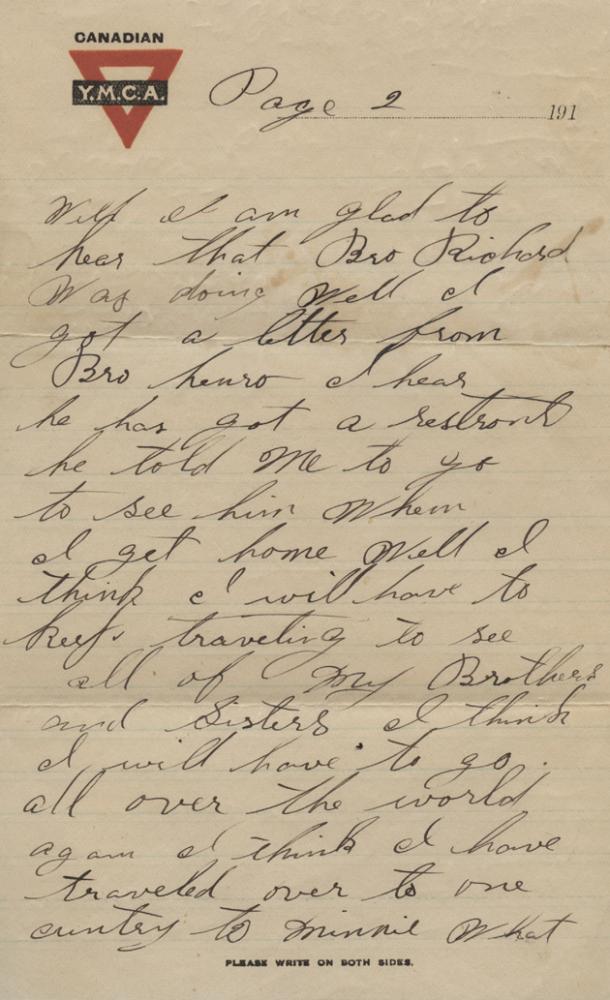 CANADIAN
Y.M.C.A.
Page 2 191
Well I am glad to
hear that Bro Richard
Was doing Well I
got a letter from
Bro henro I hear
he has got a restront
he told Me to go
to see him Whem
I get home Well I
think I will have to
Keep traveling to see
all of My Brothers
and Sisters I think
I will have to go.
all over the world
again I think I have
traveled over to one
cuntry to Minnie What
PLEASE WRITE ON BOTH SIDES.